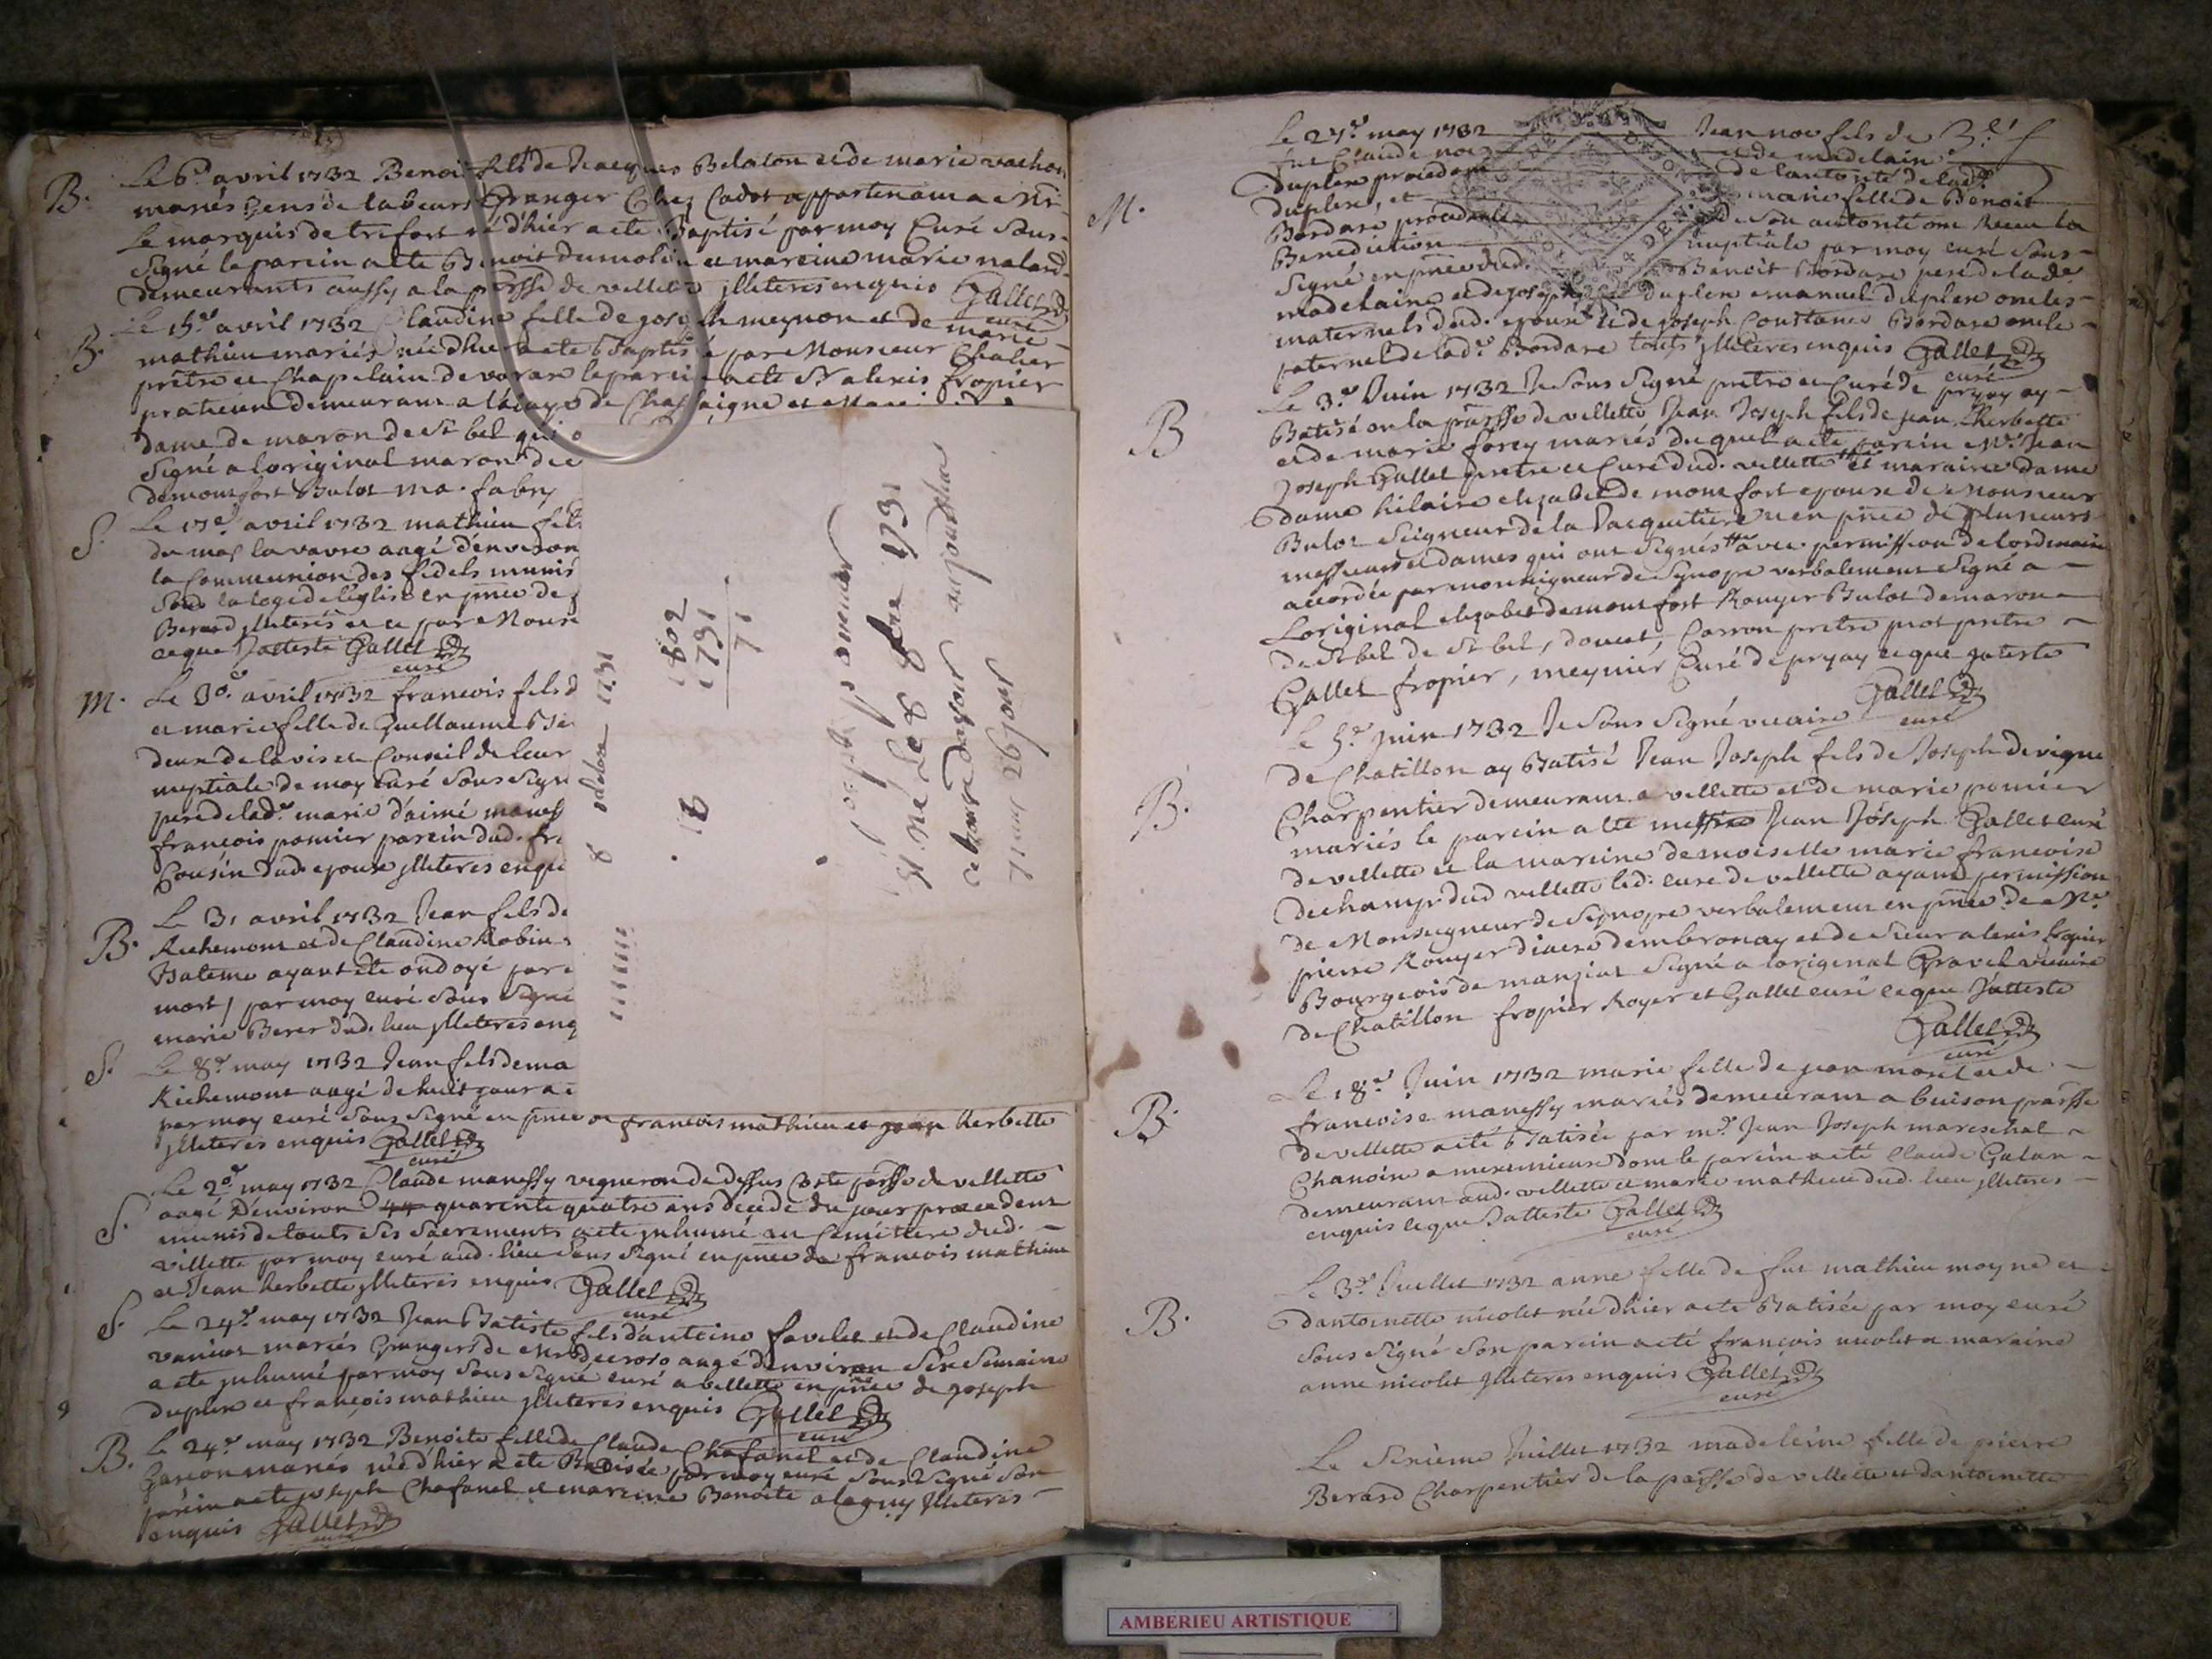 B.
Le 6e avril 1732 Benoit fils de Jacques Belaton et de marie vachon
mariés gens de labeurs Granger Chez Cadot appartenant a Mr
Le marquis de trefort né d'hier a ete Baptisé par moy Curé sous-
signé le parein a ete Benoit dumolin et mareine marie naland
demeurants aussy a la parsse de villette illiteres enquis Gallet
curé
B.
Le 15e avril 1732 Claudine fille de joseph meynon et de marie
mathieu mariés née d'hier a ete Baptisé par Monsieur Chalier
prêtre et Chapelain de varax le parein a ete Sr alexis fropier
praticien demeurant a de Chassaigne et
dame de maron de St bel qui o
signé a loriginal maron de
demontfort Bulot ma. fabry
S.
Le 17e avril 1732 mathieu fils
du mas la vavre aagé d'environ
la Communion des fidels munis
sous la loge de l'église en pnce de
Berard illiterés et ce par Monsr
ce que J'atteste Gallet
curé
M.
Le 30e avril 1732 francois fils d
et marie fille de Guillaume Be
deux de lavis et Conseil de leur
nuptiale de moy Curé sous sign
pere de lad. marie d'aimé maness
francois pomier parein dud. fr
Cousin dud. epoux illiteres enqu
B.
Le 31 avril 1732 Jean fils de
Richemont et de Claudine Robin
Bateme ayant été ondoyé par
mort) par moy curé sous signé
marie Berer dud. lieu illiteres enq
S.
Le 8e may 1732 Jean fils de ma
Richemont aagé de huit jour a é
par moy curé sous signé en pnce de francois mathieu et jean herbette
illiteres enquis Gallet
curé
S.
Le 20e may 1732 Claude manessy vigneron de dessus Coste parsse de villette
aagé D'environ 44 quarente quatre ans decede du jour precedent
munis de touts ses Sacrements a ete inhumé au Cemittere dud.
villette par moy curé aud. lieu sous signé en pnce de francois mathieu
et Jean herbette illiteres enquis Gallet
curé
S.
Le 24e may 1732 Jean Batiste fils d'antoine favelet et de Claudine
vaniot mariés Grangers de Mr decroso aagé d'environ six semaine
a ete inhumé par moy sous signé curé a villette en pnce de joseph
duplex et francois mathieu illiteres enquis Gallet
curé
B.
Le 24e may 1732 Benoite fille de Claude Chafanel et de Claudine
Garion mariés née d'hier a ete Batisée par moy curé sous signé son
parein a ete joseph Chafanel et mareine Benoite alaguy illiteres
enquis Gallet
curé
8 1731
18
1802
1731
71
joseph pomier
st. né Le 8 8bre 1731
cetanre davoir aujourdhui
71 ans 26 jours
M.
Le 27e may 1732 Jean noe fils de
feu Claude noe et de madelaine
duplex procedant de lautorité de lad.
duplex, et marie fille de Benoit
Bordare procedante de son autorité ont Receu la
Benediction nuptiale par moy curé sous-
signé en pnce dud. Benoit Bordare pere de lad.
madelaine et de joseph duplex emanuel duplex oncles
maternels dud. epoux et de joseph Constance Bordare oncle
paternel de lad. Bordare touts illiteres enquis Gallet
curé
B
Le 3e Juin 1732 Je sous signé prêtre et Curé de pryay ay
Batisé en la parsse de villette Jean Joseph fils de jean herbette
et de marie forey mariés duquel a ete parein Mr. Jean
Joseph Gallet pretre et Curé dud. villette et maraine dame
dame hilaire elizabet de montfort epouse de Monsieur
Bulot Seigneur de la Jacquetiere en pnce de plusieurs
messieurs et dames qui ont signés avec permission de lordinaire
accordée par monseigneur de Synope verbalement signé a
Loriginal elizabet demontfort Rouyer Bulot demaron
de St bel de St bel, doucet, Carron pretre prot pretre
Gallet fropier, meynier Curé de pryay ce que jateste
Gallet
curé
B.
Le 5e juin 1732 Je sous signé vicaire
de Chatillon ay Batisé Jean Joseph fils de Joseph devigne
Charpentier demeurant a villette et de marie pomier
mariés le parein a ete messire Jean Joseph Gallet curé
de villette et la mareine demoiselle marie francoise
dechamp dud villette led. curé de villette ayant permission
de Monseigneur de Synope verbalement en pnce de Mr.
pierre Rouyer diacre dembronay et de Sieur alexis fropier
Bourgeois de manziat signé a loriginal Gravel vicaire
de Chatillon fropier Royer et Gallet curé ce que J'atteste
Gallet
curé
B.
Le 18e Juin 1732 marie fille de jean morel et de
francoise manessy mariés demeurant a buison parsse
de villette a eté Batisée par mr. Jean Joseph mareschal
Chanoine a meximieux dont le parein a eté Claude Galan
demeurant aud. villette et marie mathieu dud. lieu illiteres
enquis ce que J'atteste Gallet
curé
B.
Le 3e Juillet 1732 anne fille de feu mathieu moyne et
d'antoinette nicolet née d'hier a ete Batisée par moy curé
sous signé son parein a eté francois nicolet et maraine
anne nicolet illiteres enquis Gallet
curé
Le sixieme Juillet 1732 madeleine fille de pierre
Berard Charpentier de la parsse de villette et d'antoinette
AMBERIEU ARTISTIQUE